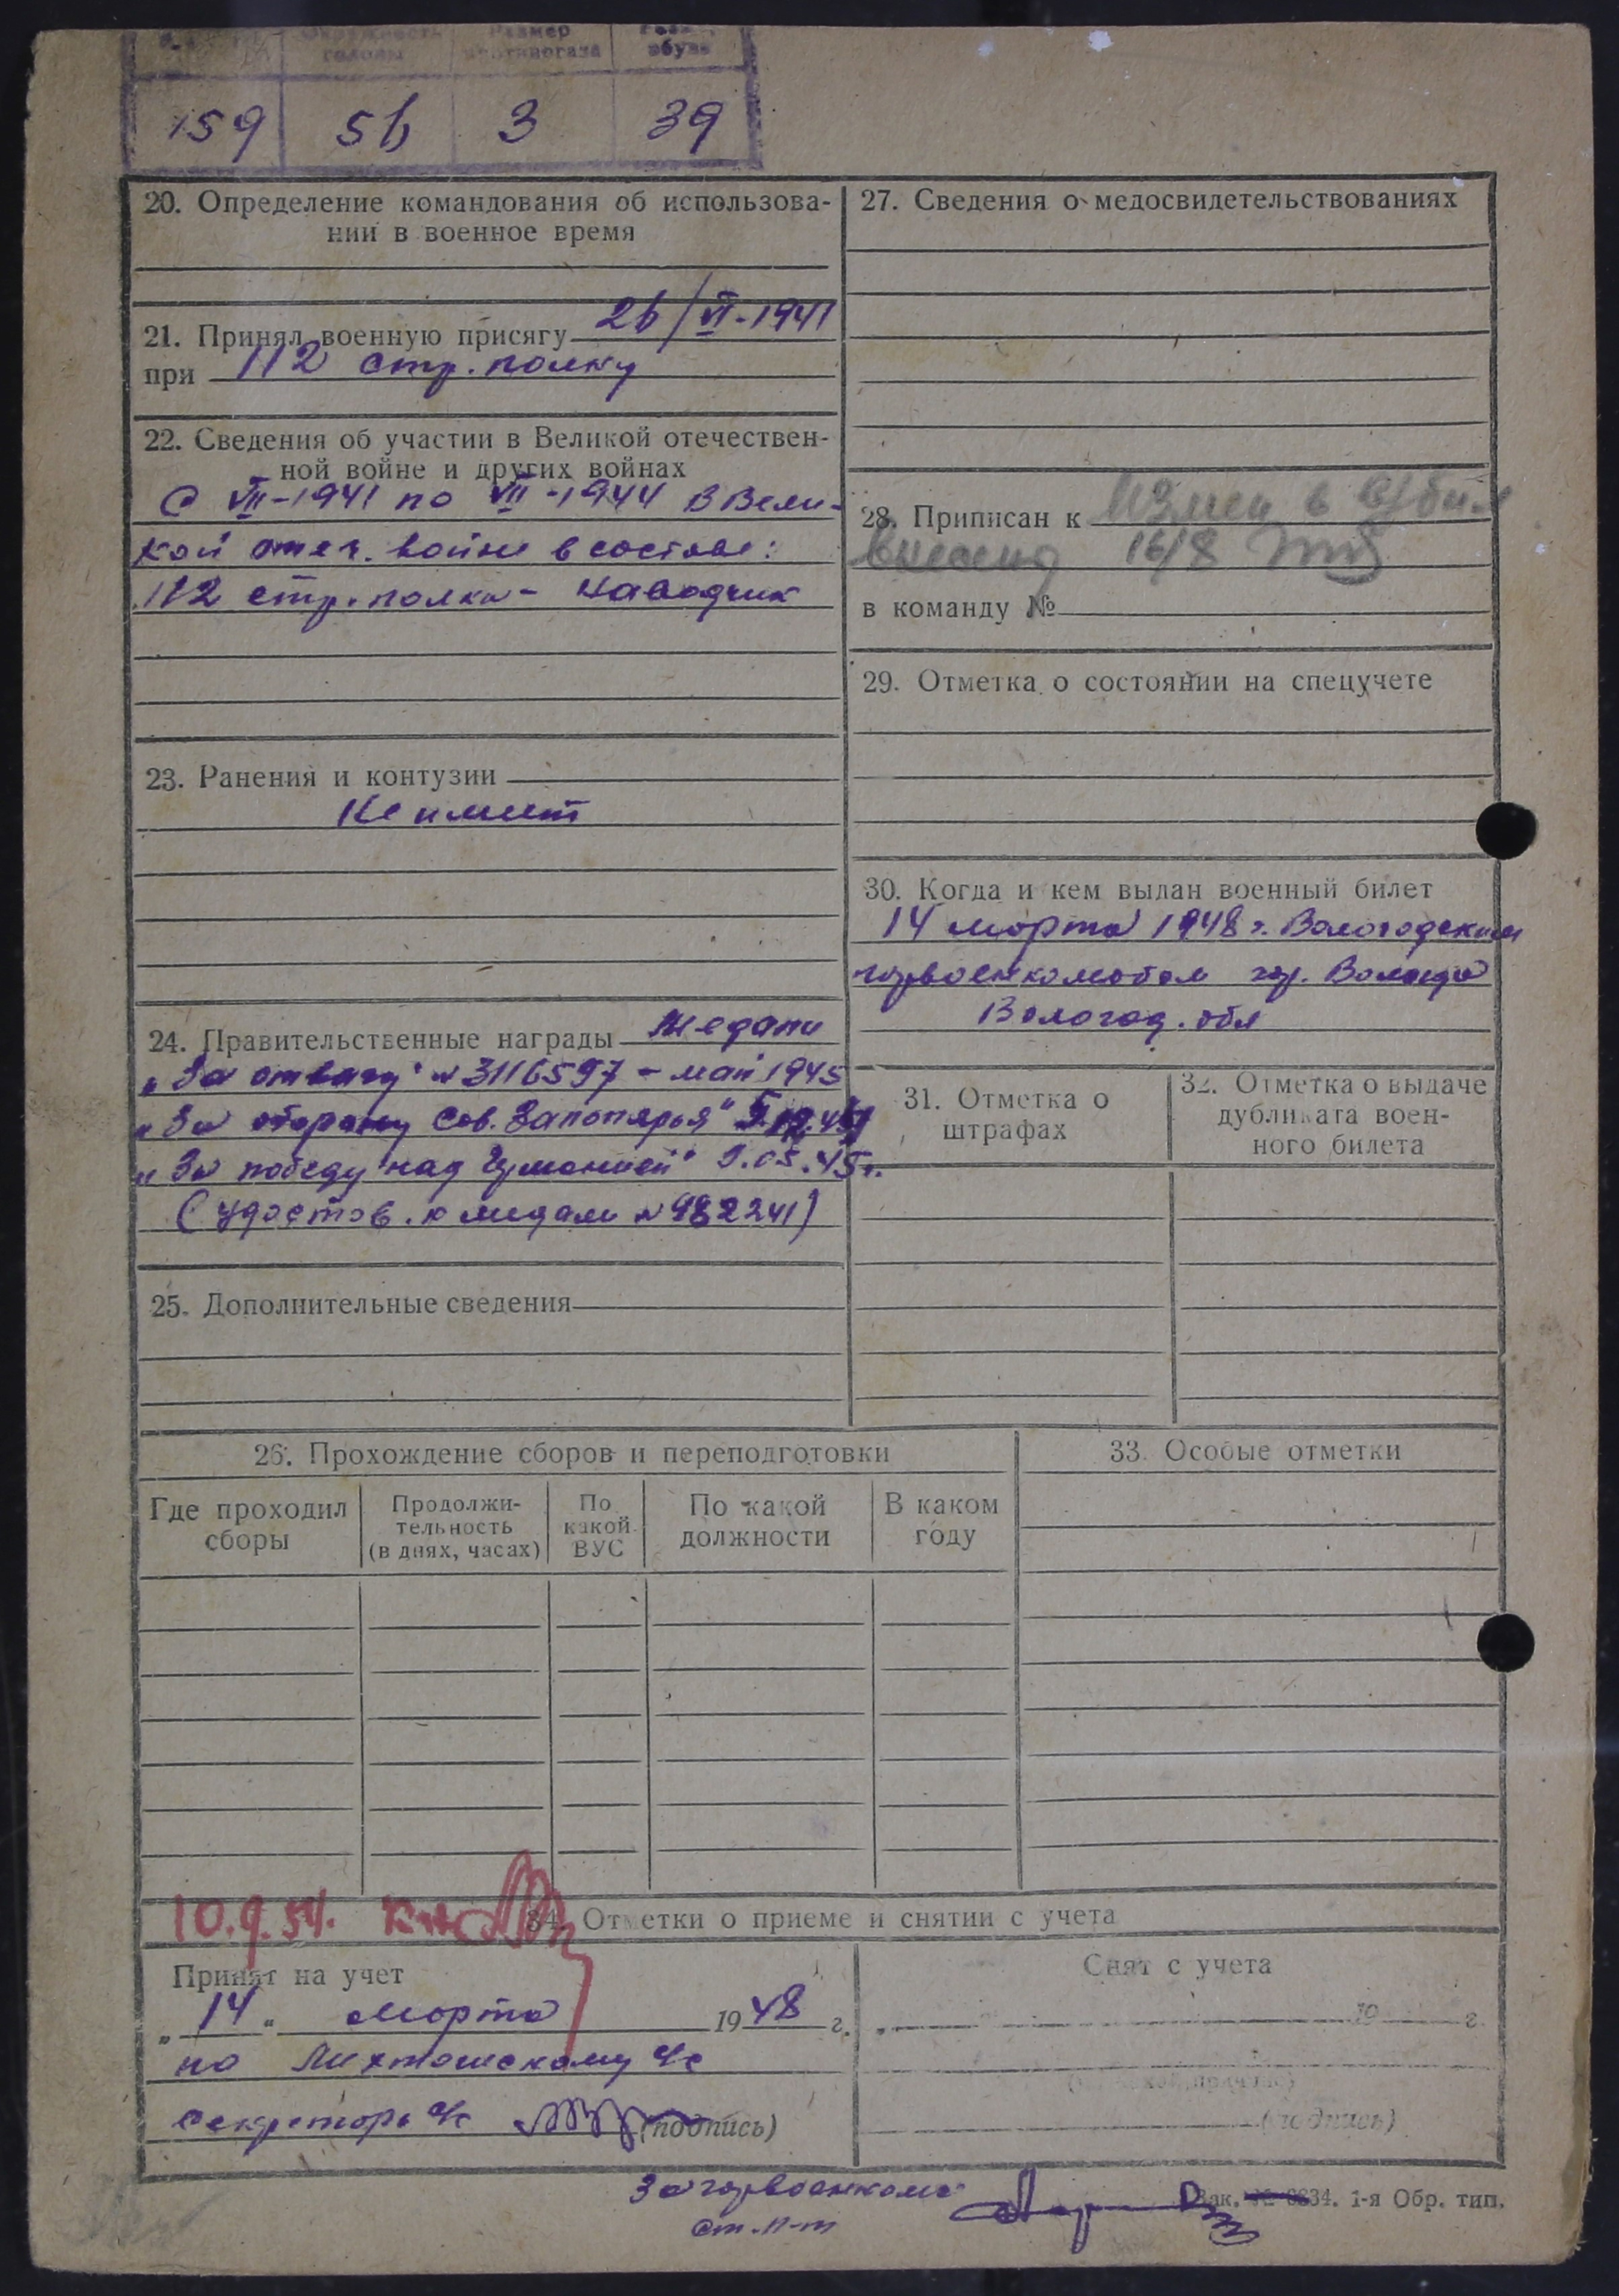 Окружность головы
Размер противогаза
обуви
159 56 3 39
20. Определение командования об использова-
нии в военное время
21. Принял военную присягу 26/VI-1941
при 112 стр. полку
22. Сведения об участии в Великой отечествен-
ной войне и других войнах
С VII-1941 по VII-1944 в Вели-
кой отеч. войне в составе:
112 стр. полка - Наводчик
23. Ранения и контузии
Не имеет
24. Правительственные награды Медали
„За отвагу" № 3116597 - май 1945
„За оборону Сов. Заполярья"
„За победу над Германией" 9.05.45г.
(удостов. к медали № 982241)
25. Дополнительные сведения
27. Сведения о медосвидетельствованиях
28. Приписан к
16/8
в команду №
29. Отметка о состоянии на спецучете
30. Когда и кем выдан военный билет
14 марта 1948 г. Вологодским
горвоенкоматом гор. Вологда
Вологод. обл
31. Отметка о
штрафах
32. Отметка о выдаче
дубликата воен-
ного билета
26. Прохождение сборов и переподготовки
Где проходил
сборы
Продолжи-
тельность
(в днях, часах)
По
какой
ВУС
По какой
должности
В каком
году
33. Особые отметки
10.9.54.
34. Отметки о приеме и снятии с учета
Принят на учет
„14" марта 1948 г.
по Лихтошскому с/с
секретарь с/с (подпись)
Снят с учета
„ 19 г.
(подпись)
За горвоенкома
ст. л-т
Зак. № 34. 1-я Обр. тип.